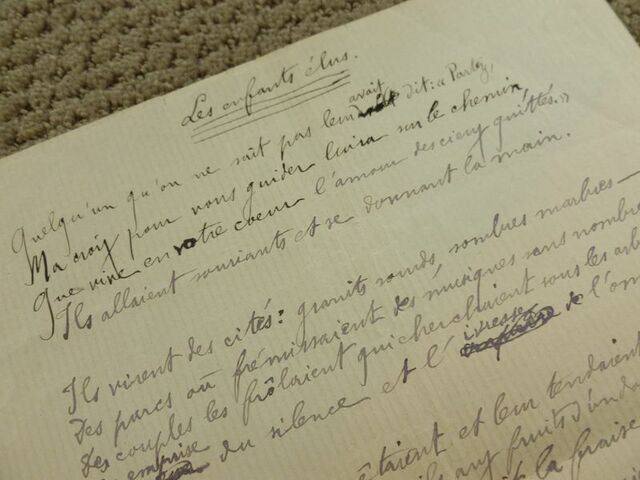 Les enfants élus.
Quelqu'un qu'on ne sait pas leur avait dit : « Partez,
Ma croix pour vous guider luira sur le chemin
Que vive en votre coeur l'amour des cieux quittés. »
Ils allaient souriants et se donnant la main.
Ils virent des cités : granits sourds, sombres marbres —
Des parcs où frémissaient des musiques sans nombre
Des couples les frôlaient qui cherchaient sous les arb
emprise du silence et l'ivresse de l'om
étaient et leur tendaient
aux fruits d'un
la fraise